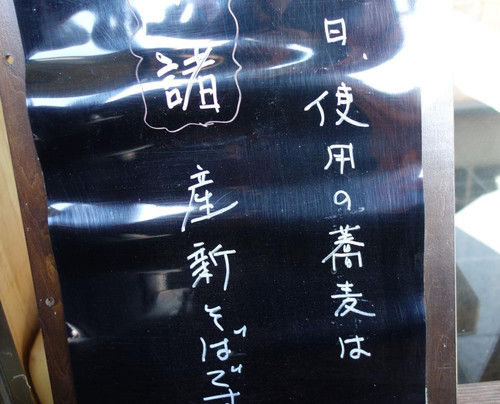 日、使用の蕎麦は
諸
産新そばです